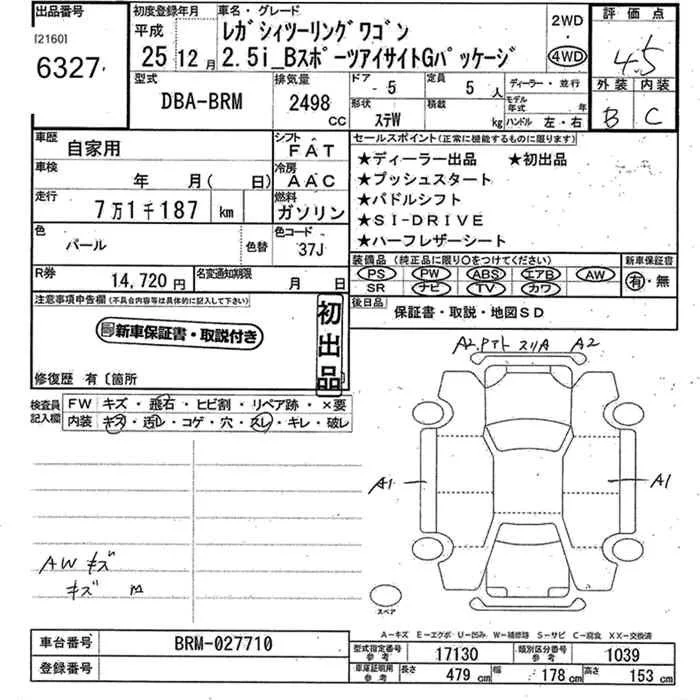 出品番号
[2160]
6327
初度登録年月
平成
25 12月
車名・グレード
レガシィツーリングワゴン
2.5i_BスポーツアイサイトGパッケージ
2WD
・
4WD
評価点
4.5
外装 内装
B C
型式
DBA-BRM
排気量
2498
CC
ドア
- 5
定員
5 人
ディーラー・並行
形状
ステW
積載
kg
モデル年式 年
ハンドル 左・右
車歴
自家用
シフト
FAT
車検
年 月( 日)
冷房
AAC
走行
7万1千187 km
燃料
ガソリン
色
パール
色替
色コード
37J
R券
14,720円
名変通知期限
月 日
セールスポイント(正常に機能するものに限ります)
★ディーラー出品 ★初出品
★プッシュスタート
★パドルシフト
★SI-DRIVE
★ハーフレザーシート
装備品 (純正品に限り○をつけてください)
PS PW ABS エアB AW
SR ナビ TV カワ
新車保証書
有・無
後日品
保証書・取説・地図SD
注意事項申告欄(不具合内容等は具体的に記入して下さい)
新車保証書・取説付き
初出品
修復歴 有〔箇所
検査員記入欄
FW キズ・飛石・ヒビ割・リペア跡・×要
内装 キズ・汚レ・コゲ・穴・スレ・キレ・破レ
A2 スリA A2
A1
A1
AW キズ
キズ
スペア
A-キズ E-エクボ U-凹み W-補修跡 S-サビ C-腐食 XX-交換済
車台番号
BRM-027710
登録番号
型式指定番号
参考
17130
類別区分番号
参考
1039
車庫証明用
参考
長さ 479cm
幅 178cm
高さ 153cm